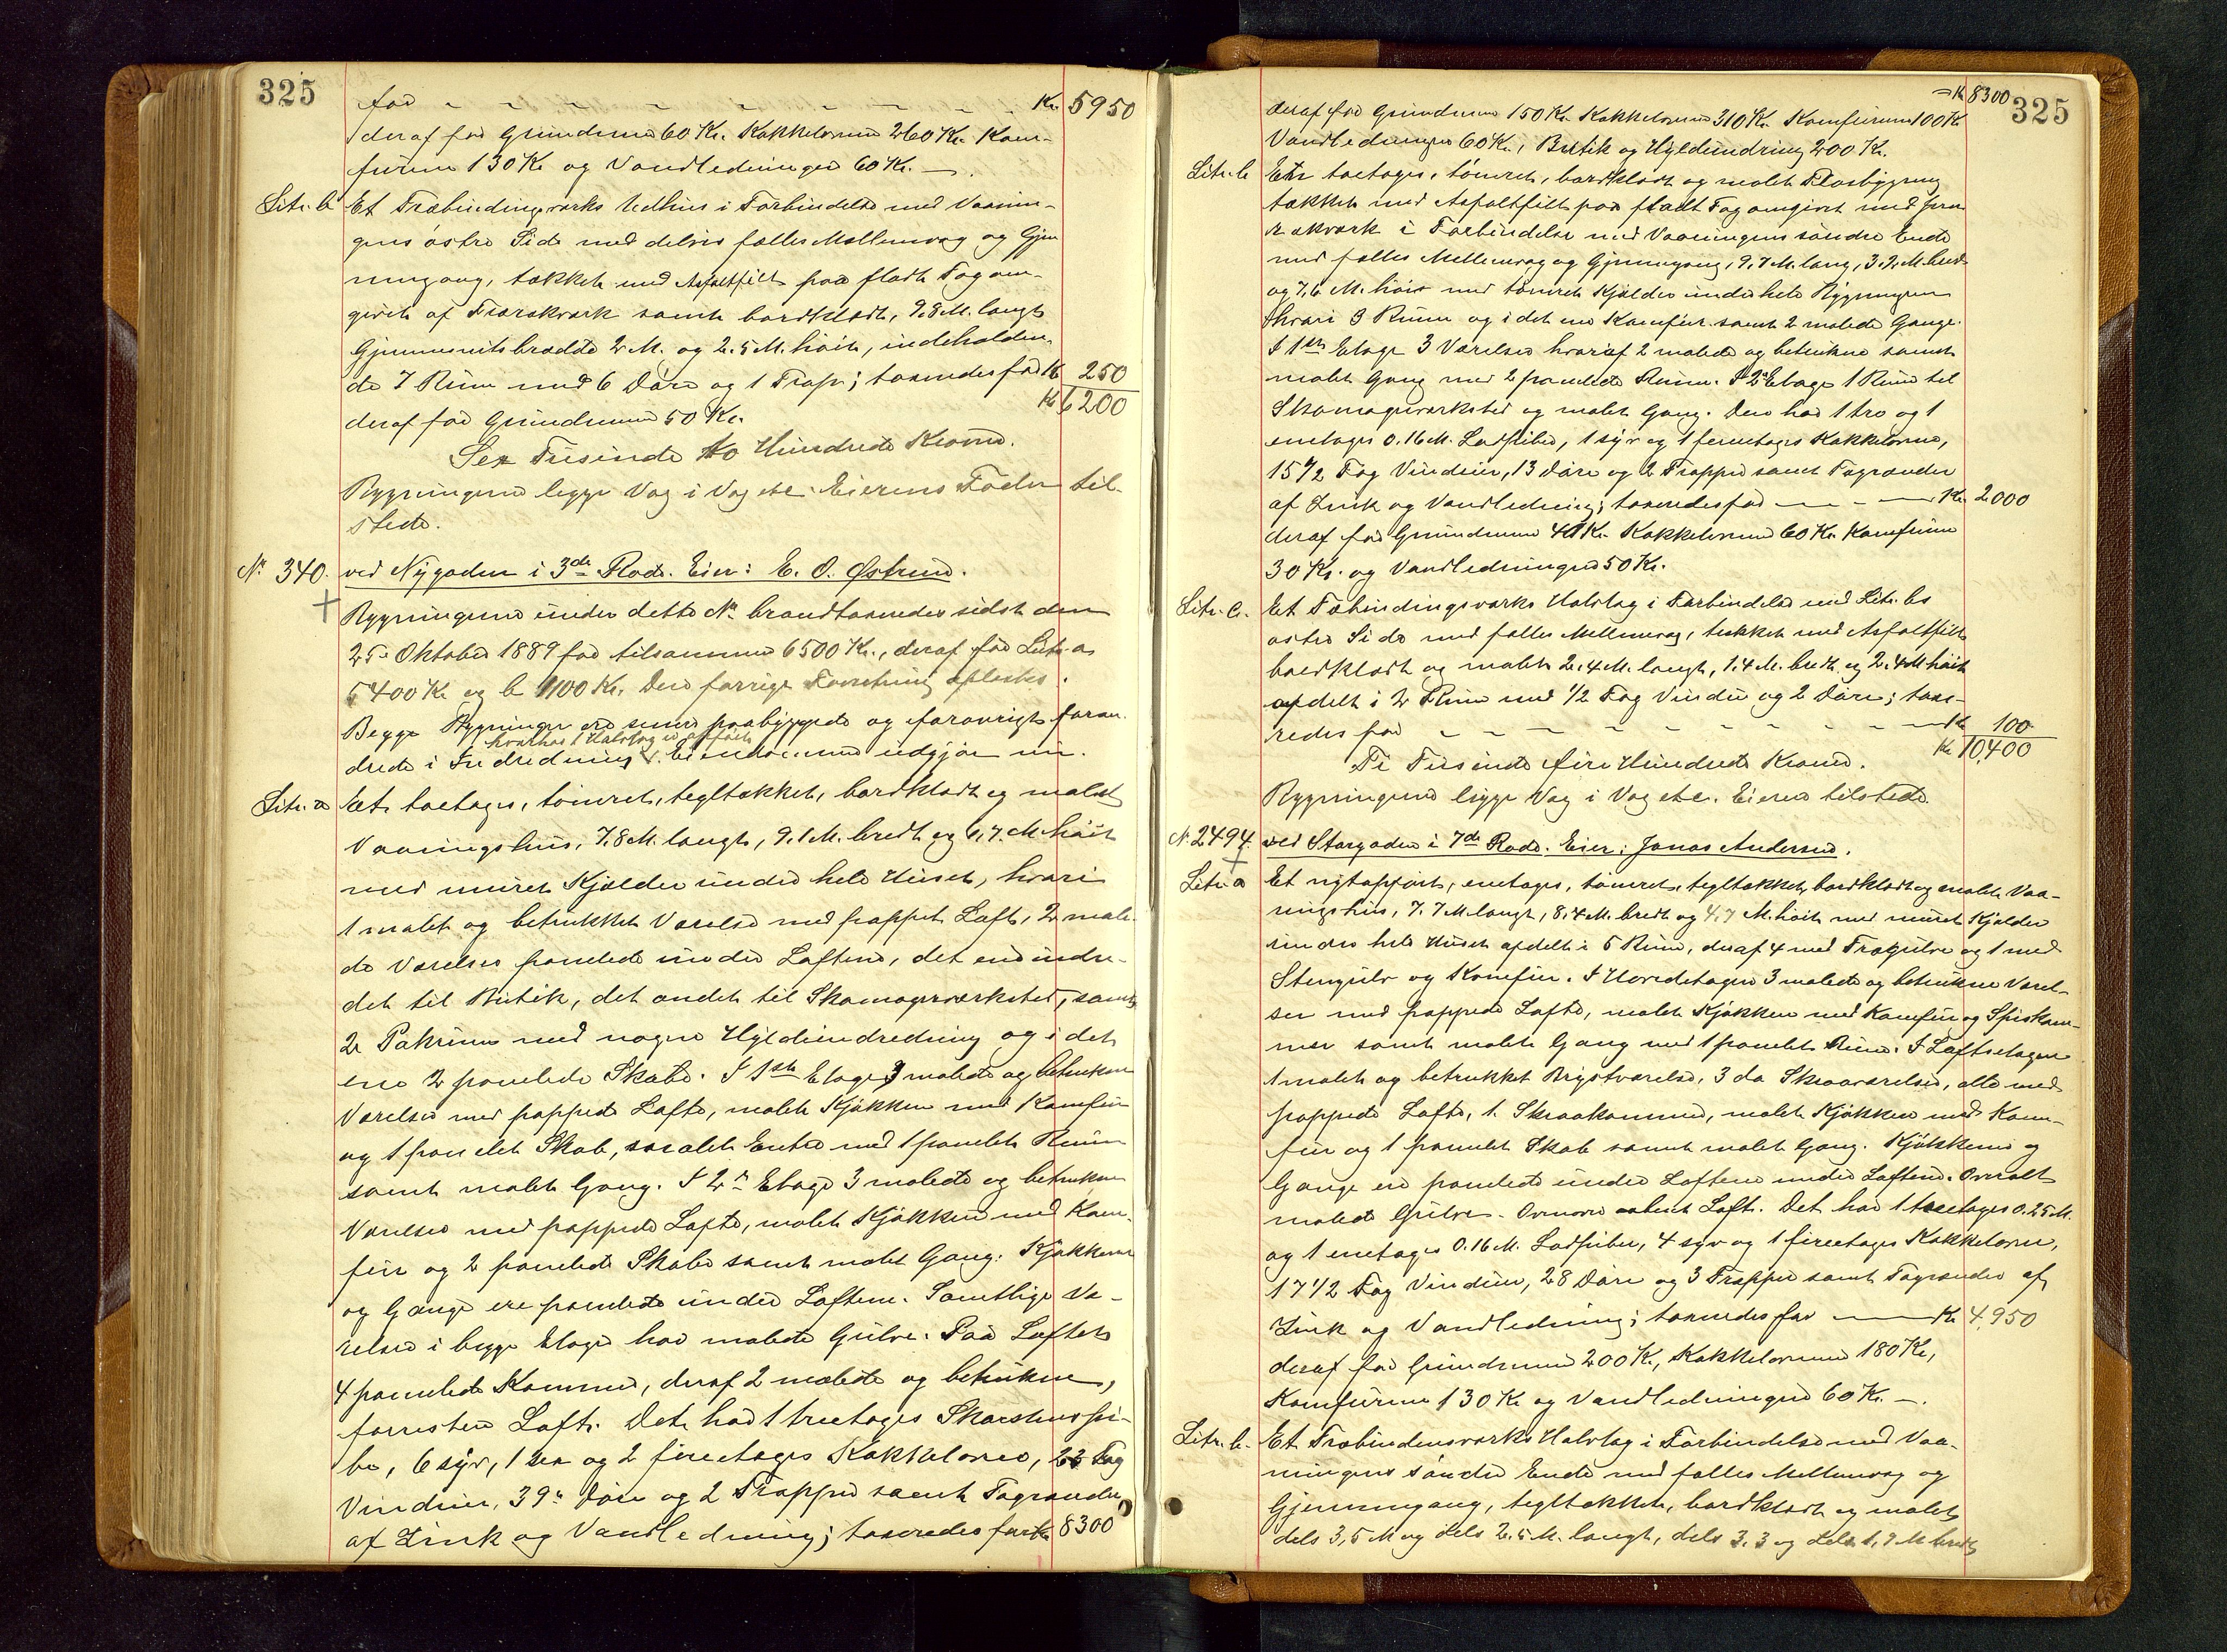 325
for - - - - - - - - Kr. 5950
deraf for Grundmuren 60 Kr. Kakkelovnene 260 Kr. Kom-
furene 130 Kr og Vandledningen 60 Kr. —.
Litr. b Et Træbindingsverks Udhus i Forbindelse med Vaanin-
gens østre Side med delvis fælles Mellemvæg og Gjen
nemgang, tækket med Asfaltfilt paa fladt Tag om-
givet af Træræk­værk samt bordklædt, 9.8 M. langt
Gjennemsnitsbredde 2 M. og 2.5 M. høit, indeholden-
de 7 Rum med 6 Døre og 1 Trap; taxeredes for Kr 250
deraf for Grundmuren 50 Kr. Kr 6200
Sex Tusinde to Hundrede Kroner.
Bygningerne ligge Væg i Væg etc. Eierens Fader til-
stede.
No 340. ved Nygaden i 3de Rode. Eier: E. O. Østrem.
Bygningerne under dette No brandtaxeredes sidst den
25de Oktober 1889 for tilsammen 6500 Kr., deraf for Litr. a
5400 Kr og b 1100 Kr. Den forrige Forretning oplæstes.
Begge Bygninger ere senere paabyggede og forøvrigt foran-
hvorhos 1 Halvtag er opført
drede i Indredning. Eiendommen udgjør nu.
Litr. a Et toetages, tømret, tegltækket, bordklædt og malet
Vaaningshus, 7.8 M. langt, 9.1 M. bredt og 9,7 M. høit
med muret Kjælder under hele Huset, hvori
1 malet og betrukket Værelse med pappet Loft, 2 male-
de Værelser panelede under Loftene, det ene indre-
det til Butik, det andet til Skomagerværksted, samt
2 Pakrum med nogen Hyldeindredning og i det
ene 2 panelede Skabe. I 1ste Etage 3 malede og betrukne
Værelser med pappede Lofte, malet Kjøkken med Komfur
og 1 panelet Skab, malet Entre med 1 panelet Rum
samt malet Gang. I 2den Etage 3 malede og betrukne
Værelser med pappede Lofte, malet Kjøkken med Kom-
fur og 2 panelede Skabe samt malet Gang. Kjøkkener
og Gange ere panelede under Loftene. Samtlige Væ-
relser i begge Etager har malede Gulve. Paa Loftet
4 panelede Kammer, deraf 2 malede og betrukne,
forresten Loft. Det har 1 treetages Skorstenspi-
be, 6 syv, 1 sex og 2 fireetages Kakkelovne, 23 Fag
Vinduer, 39 Døre og 2 Trapper samt Tagrender
af Zink og Vandledning; taxeredes for Kr 8300
Kr 8300 325
deraf for Grundmuren 150 Kr. Kakkelovnene 310 Kr. Komfurene 100 Kr
Vandledningen 60 Kr., Butik og Hyldeindredning 200 Kr.
Litr. b En toetages, tømret, bordklædt og malet Flosbygning
tækket med Asfaltfilt paa fladt Tag omgivet med Jern
rækværk i Forbindelse med Vaaningens søndre Ende
med fælles Mellemvæg og Gjennemgang, 9.7 M. lang, 3.9. M. bred
og 7,6 M. høi med tømret Kjælder under hele Bygningen
hvori 3 Rum og i det ene Komfur samt 2 malede Gange.
I 1ste Etage 3 Værelser hvoraf 2 malede og betrukne samt
malet Gang med 2 panelede Rum. I 2den Etage 1 Rum til
Skomagerværksted og malet Gang. Den har 1 tre og 1
enetages 0.16 M. Ladpiber, 1 syv og 1 fireetages Kakkelovne,
15 1/2 Fag Vinduer, 13 Døre og 2 Trapper samt Tagrender
af Zink og Vandledning; taxeredes for — - — Kr. 2000
deraf for Grundmuren 40 Kr. Kakkelovnene 60 Kr. Komfuren
30 Kr. og Vandledningen 50 Kr.
Litr. c. Et Træbindingsværks Halvtag i Forbindelse med Litr. bs
østre Side med fælles Mellemvæg, tækket med Asfaltfilt
bordklædt og malet 2.4 M. langt, 1.4 M. bredt og 2.4 M høit
afdelt i 2 Rum med 1/2 Fag Vindu og 2 Døre; taxe-
redes for - - - - - - - - Kr 100
Ti Tusinde fire Hundrede Kroner. Kr 10,400
Bygningerne ligge Væg i Væg etc. Eieren tilstede.
No 2494. ved Storgaden i 7de Rode. Eier: Jonas Andersen.
Litr. a Et nytopført, enetages, tømret, tegltækket, bordklædt og malet Vaa-
ningshus, 7.7 M langt, 8,4 M. bredt og 4,7 M. høit med muret Kjælder
under hele Huset afdelt i 5 Rum, deraf 4 med Trægulve og 1 med
Stengulv og Komfur. I Hovedetagen 3 malede og betrukne Værel-
ser med pappede Lofte, malet Kjøkken med Komfur og Spiskam-
mer samt malet Gang med 1 panelet Rum. I Loftsetagen
1 malet og betrukket Brystværelse, 3 do Skraaværelser, alle med
pappede Lofte, 1 Skraakammer, malet Kjøkken med Kom-
fur og 1 panelet Skab samt malet Gang. Kjøkkener og
Gange ere panelede under Loftene under Loftene. Overalt
malede Gulve. Ovenover aabent Loft. Det har 1 toetages 0.25 M.
og 1 enetages 0.16 M. Ladpiber, 4 syv og 1 fireetages Kakkelovne,
17 1/2 Fag Vinduer, 28 Døre og 3 Trapper samt Tagrender af
Zink og Vandledning; taxeredes for — Kr 4,950
deraf for Grundmuren 200 Kr., Kakkelovnene 180 Kr.,
Komfurene 130 Kr og Vandledningen 60 Kr. —.
Litr. b. Et Træbindensværks Halvtag i Forbindelse med Vaa-
ningens søndre Ende med fælles Mellemvæg og
Gjennemgang, tegltækket, bordklædt og malet
dels 3,5 M og dels 2.5 M. langt, dels 3.3 og dels 1,9 M bredt